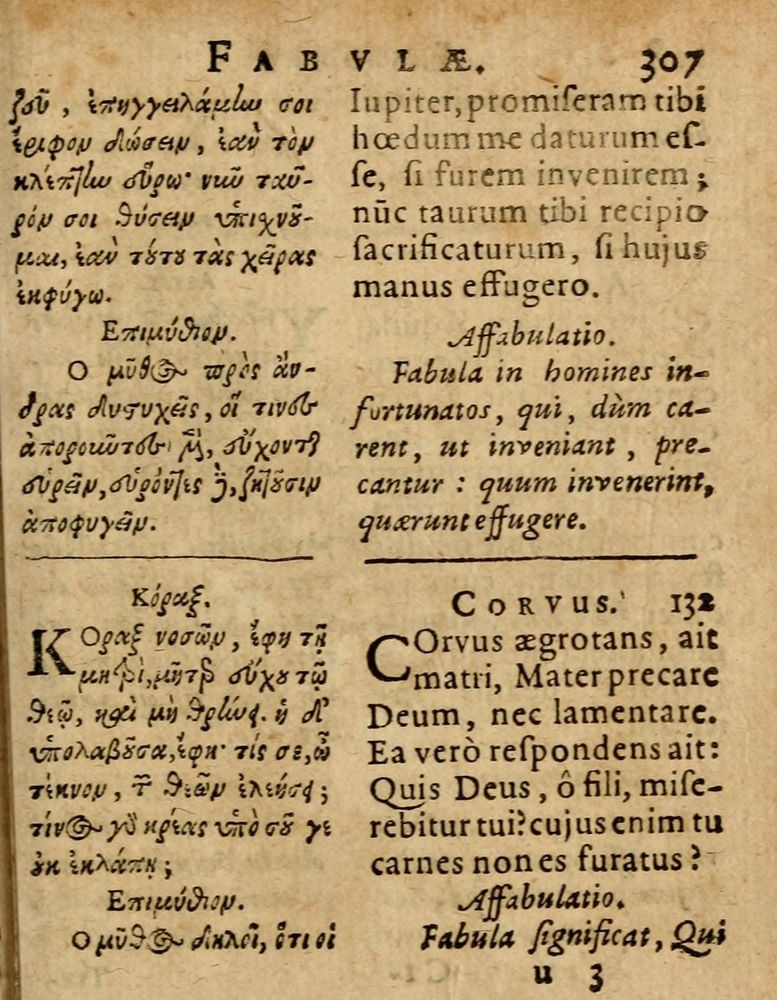 FABVLÆ. 307
ζοῦ, ἐπηγγειλάμην σοι
ἔριφον δώσειν, ἐὰν τὸν
κλέπτην εὕρω· νῦν ταῦ-
ρόν σοι θύσειν ὑπιχνοῦ-
μαι, ἐὰν τούτου τὰς χεῖρας
ἐκφύγω.
Επιμύθιον.
Ο μῦθος πρὸς ἄν-
δρας δυστυχεῖς, οἵ τινες
ἀποροῦντες μὲν, εὔχονται
εὑρεῖν, εὑρόντες δὲ, ζητοῦσιν
ἀποφυγεῖν.
Κόραξ.
ΚΟραξ νοσῶν, ἔφη τῇ
μητρὶ, μῆτερ εὔχου τῷ
θεῷ, καὶ μὴ θρήνει. ἡ δ'
ὑπολαβοῦσα, ἔφη· τίς σε, ὦ
τέκνον, τῶν θεῶν ἐλεήσει;
τίνος γὸ κρέας ὑπὸ σοῦ γε
οὐκ ἐκλάπη;
Επιμύθιον.
Ο μῦθος δηλοῖ, ὅτι οἱ
Iupiter, promiſeram tibi
hœdum me daturum eſ-
ſe, ſi furem invenirem;
nūc taurum tibi recipio
ſacrificaturum, ſi hujus
manus effugero.
Affabulatio.
Fabula in homines in-
fortunatos, qui, dùm ca-
rent, ut inveniant, pre-
cantur: quum invenerint,
quærunt effugere.
CORVUS. 132
COrvus ægrotans, ait
matri, Mater precare
Deum, nec lamentare.
Ea verò reſpondens ait:
Quis Deus, ô fili, miſe-
rebitur tui? cujus enim tu
carnes non es furatus?
Affabulatio.
Fabula ſignificat, Qui
u 3